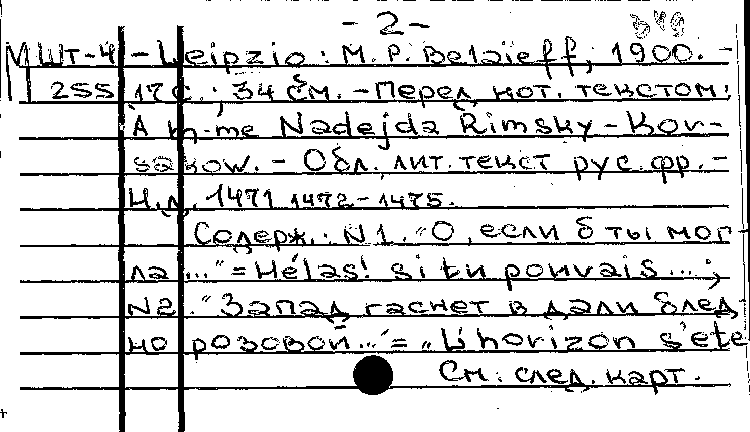 - 2 -
МШт-4 - Leipzig : M. P. Belaïeff, 1900. -
255 17 с. ; 34 см. - Перед нот. текстом:
À m-me Nadejda Rimsky-Kor-
sakow. - Обл. лит. текст рус. фр. -
Н.д. 1471 1472-1475.
Содерж.: N1. "О, если б ты мог-
ла ..." = Hélas! si tu pouvais ... ;
N2. "Запад гаснет в дали блед-
но розовой..." = "L'horizon s'ete
См. след. карт.